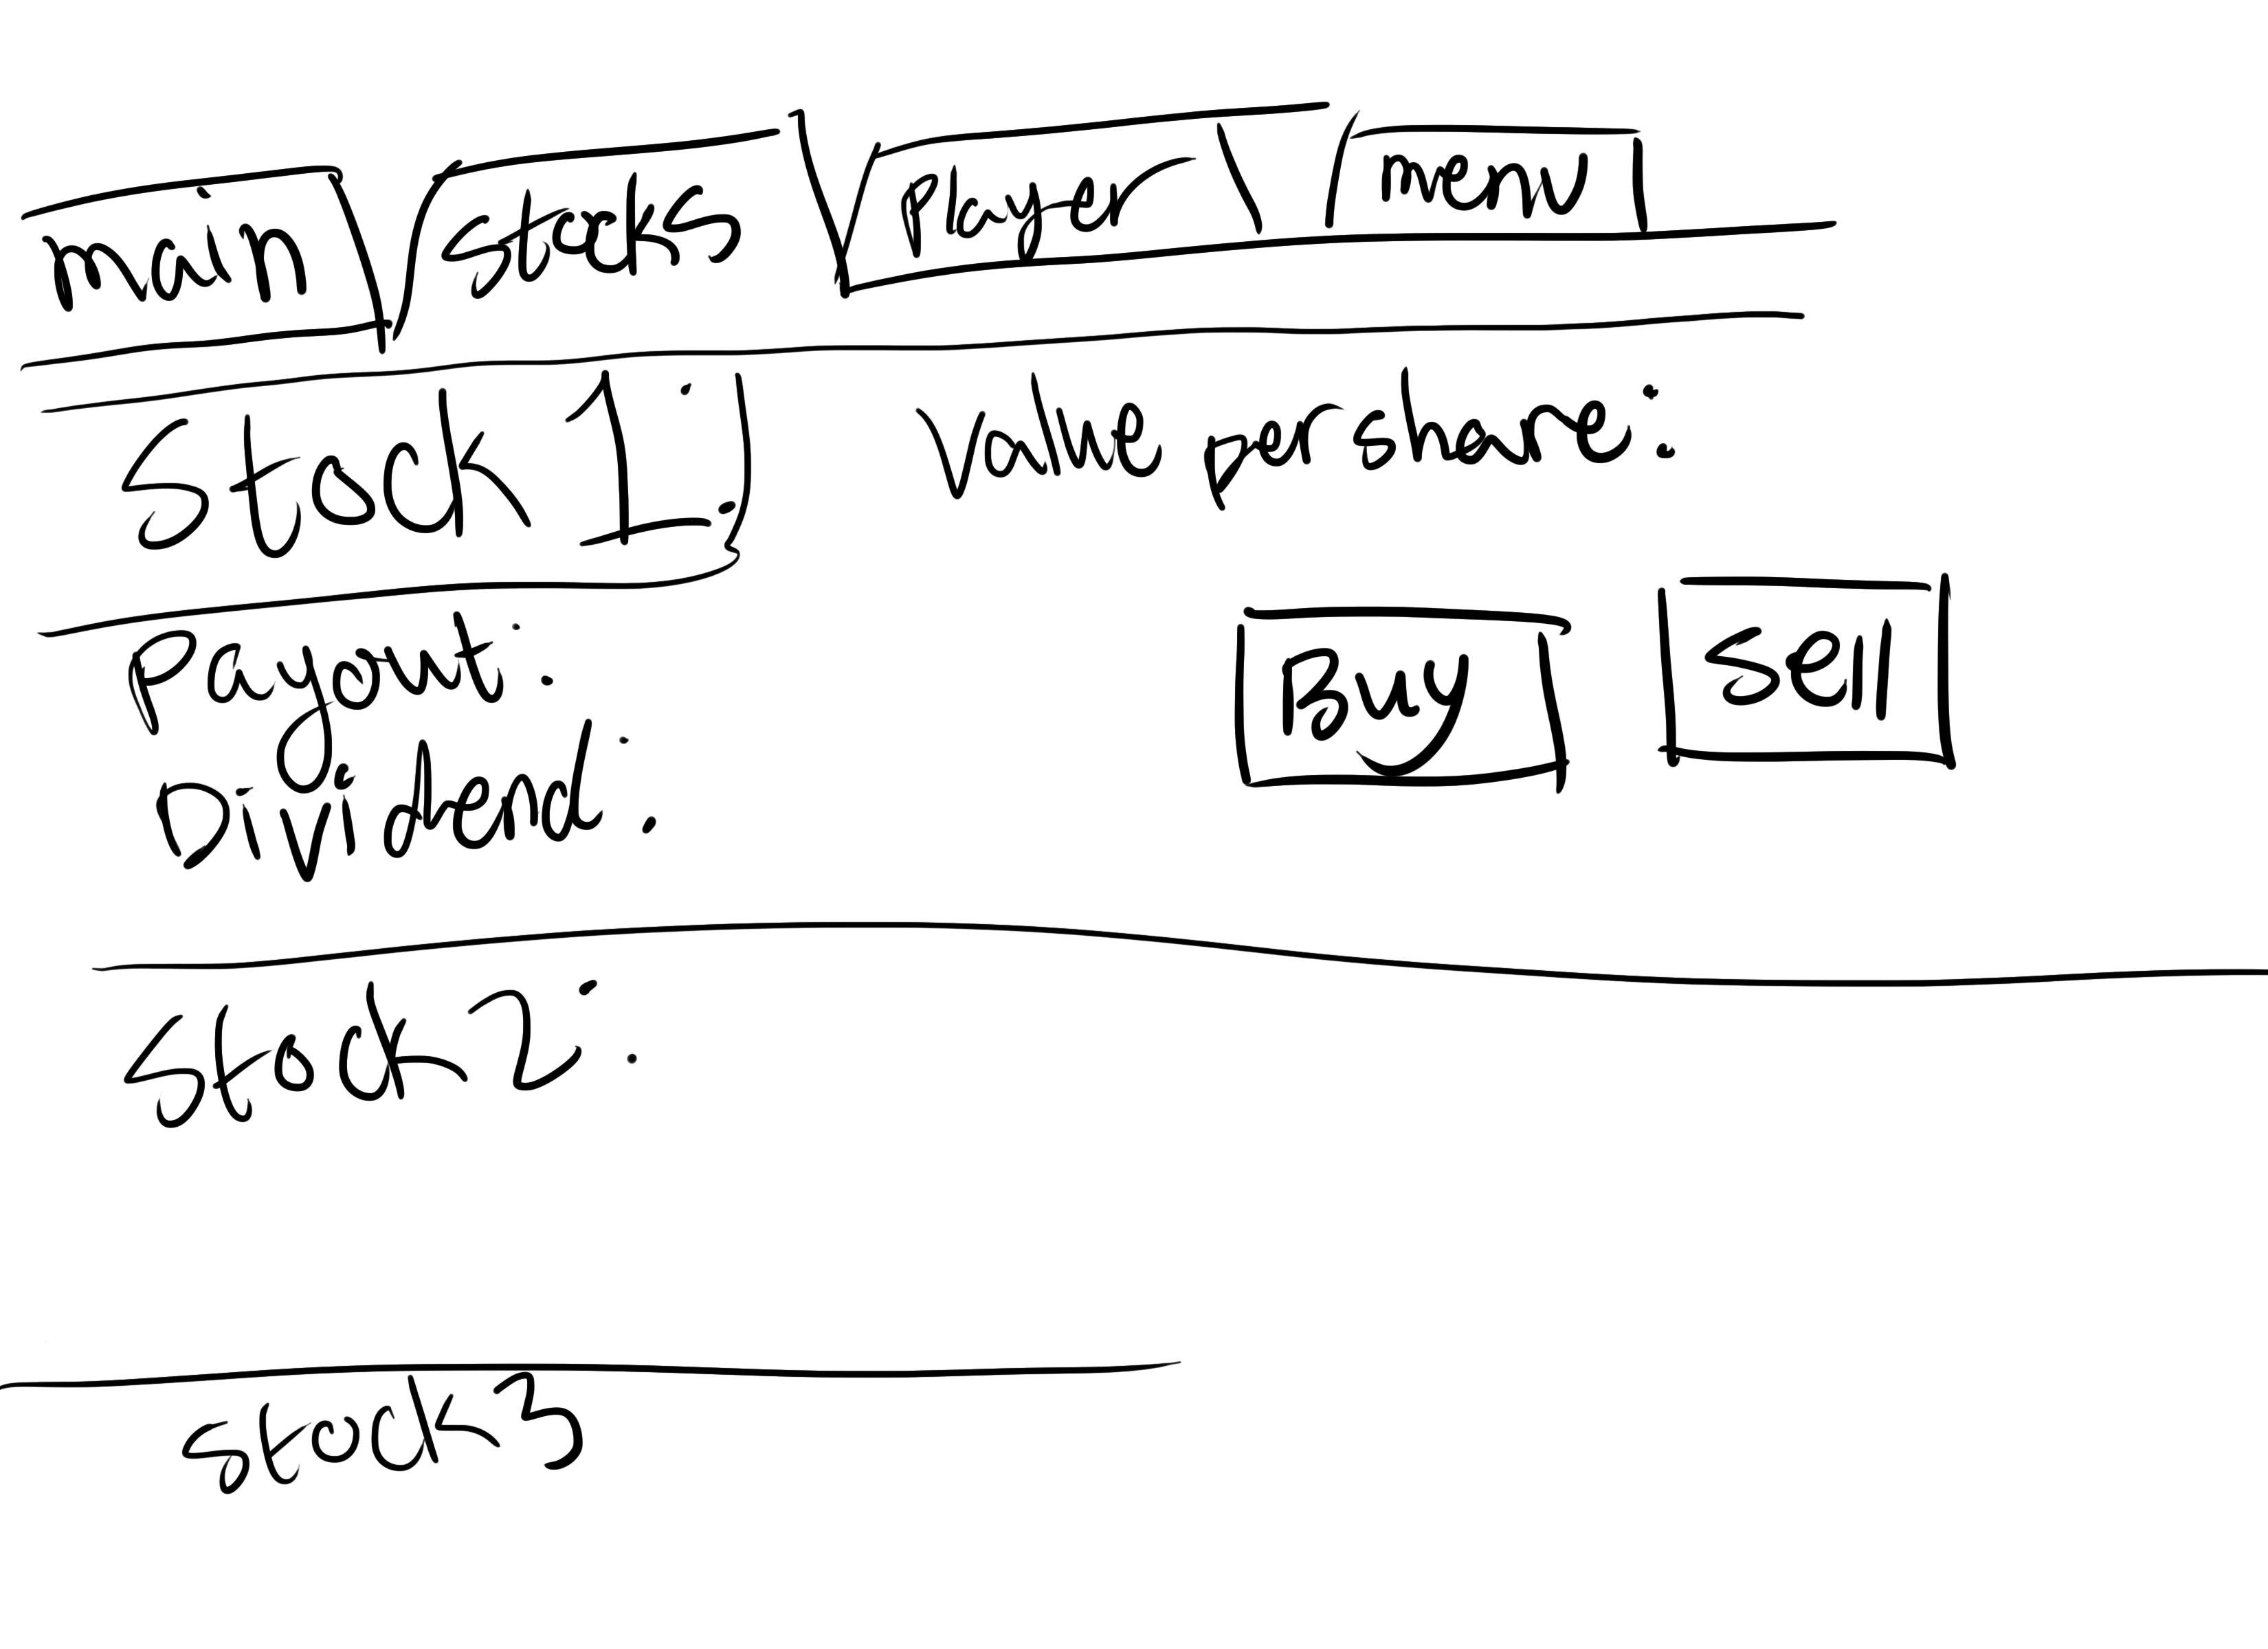 main stocks Player menu
Stock 1: Value per share:
Payout: Buy Sell
Dividend:
Stock 2:
stock 3